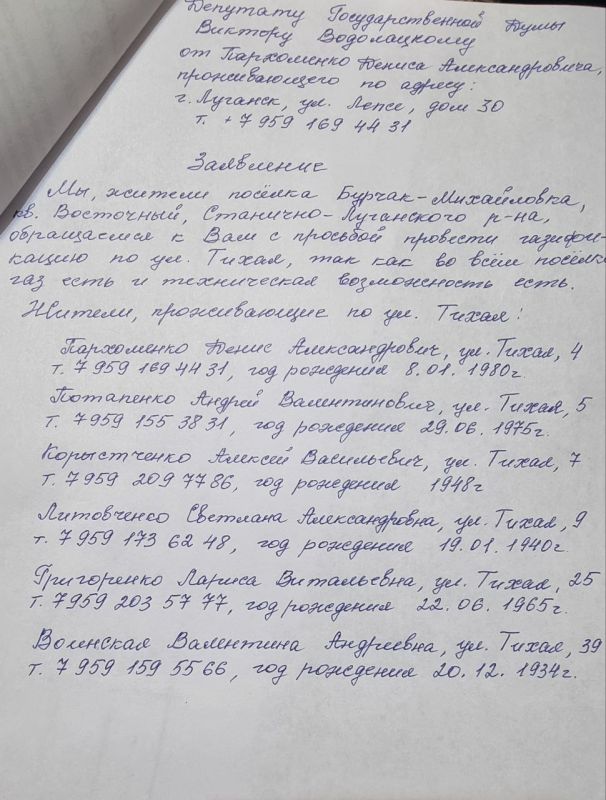 Депутату Государственной Думы
Виктору Водолацкому
от Пархоменко Дениса Александровича,
проживающего по адресу:
г. Луганск, ул. Лепсе, дом 30
т. +7 959 169 44 31
Заявление
Мы, жители посёлка Бурчак-Михайловка,
кв. Восточный, Станично-Луганского р-на,
обращаемся к Вам с просьбой провести газифи-
кацию по ул. Тихая, так как во всём посёлке
газ есть и техническая возможность есть.
Жители, проживающие по ул. Тихая:
Пархоменко Денис Александрович, ул. Тихая, 4
т. 7 959 169 44 31, год рождения 8.01.1980г.
Потапенко Андрей Валентинович, ул. Тихая, 5
т. 7959 155 38 31, год рождения 29.06.1975г.
Корыстченко Алексей Васильевич, ул. Тихая, 7
т. 7 959 209 77 86, год рождения 1948г
Литовченко Светлана Александровна, ул. Тихая, 9
т. 7 959 173 62 48, год рождения 19.01.1940г.
Григоренко Лариса Витальевна, ул. Тихая, 25
т. 7959 203 57 77, год рождения 22.06.1965г.
Волинская Валентина Андреевна, ул. Тихая, 39
т. 7 959 159 55 66, год рождения 20.12.1934г.